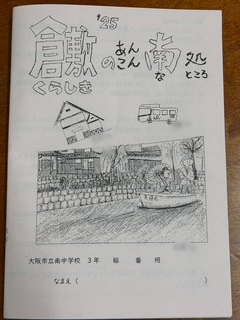 '25
倉敷のあんこん南処
くらしき な ところ
大阪市立南中学校 3年 組 番 班
なまえ( )